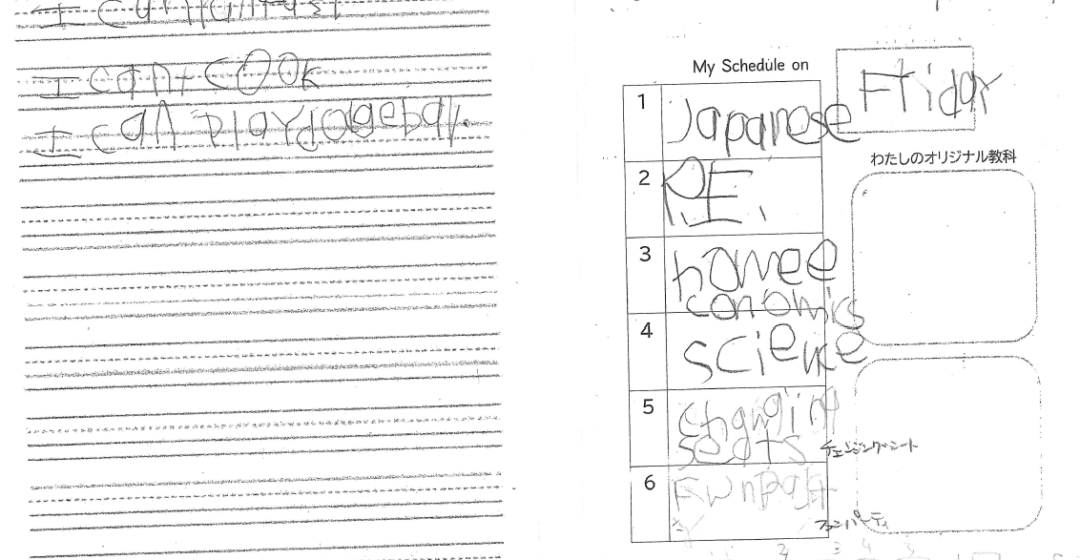 I can
I can't cook
I can play dogebal.
My Schedule on Friday
1 Japanese
2 P.E.
3 home e
conomics
4 science
5
seats チェンジングシート
6 ファンパーティ
わたしのオリジナル教科